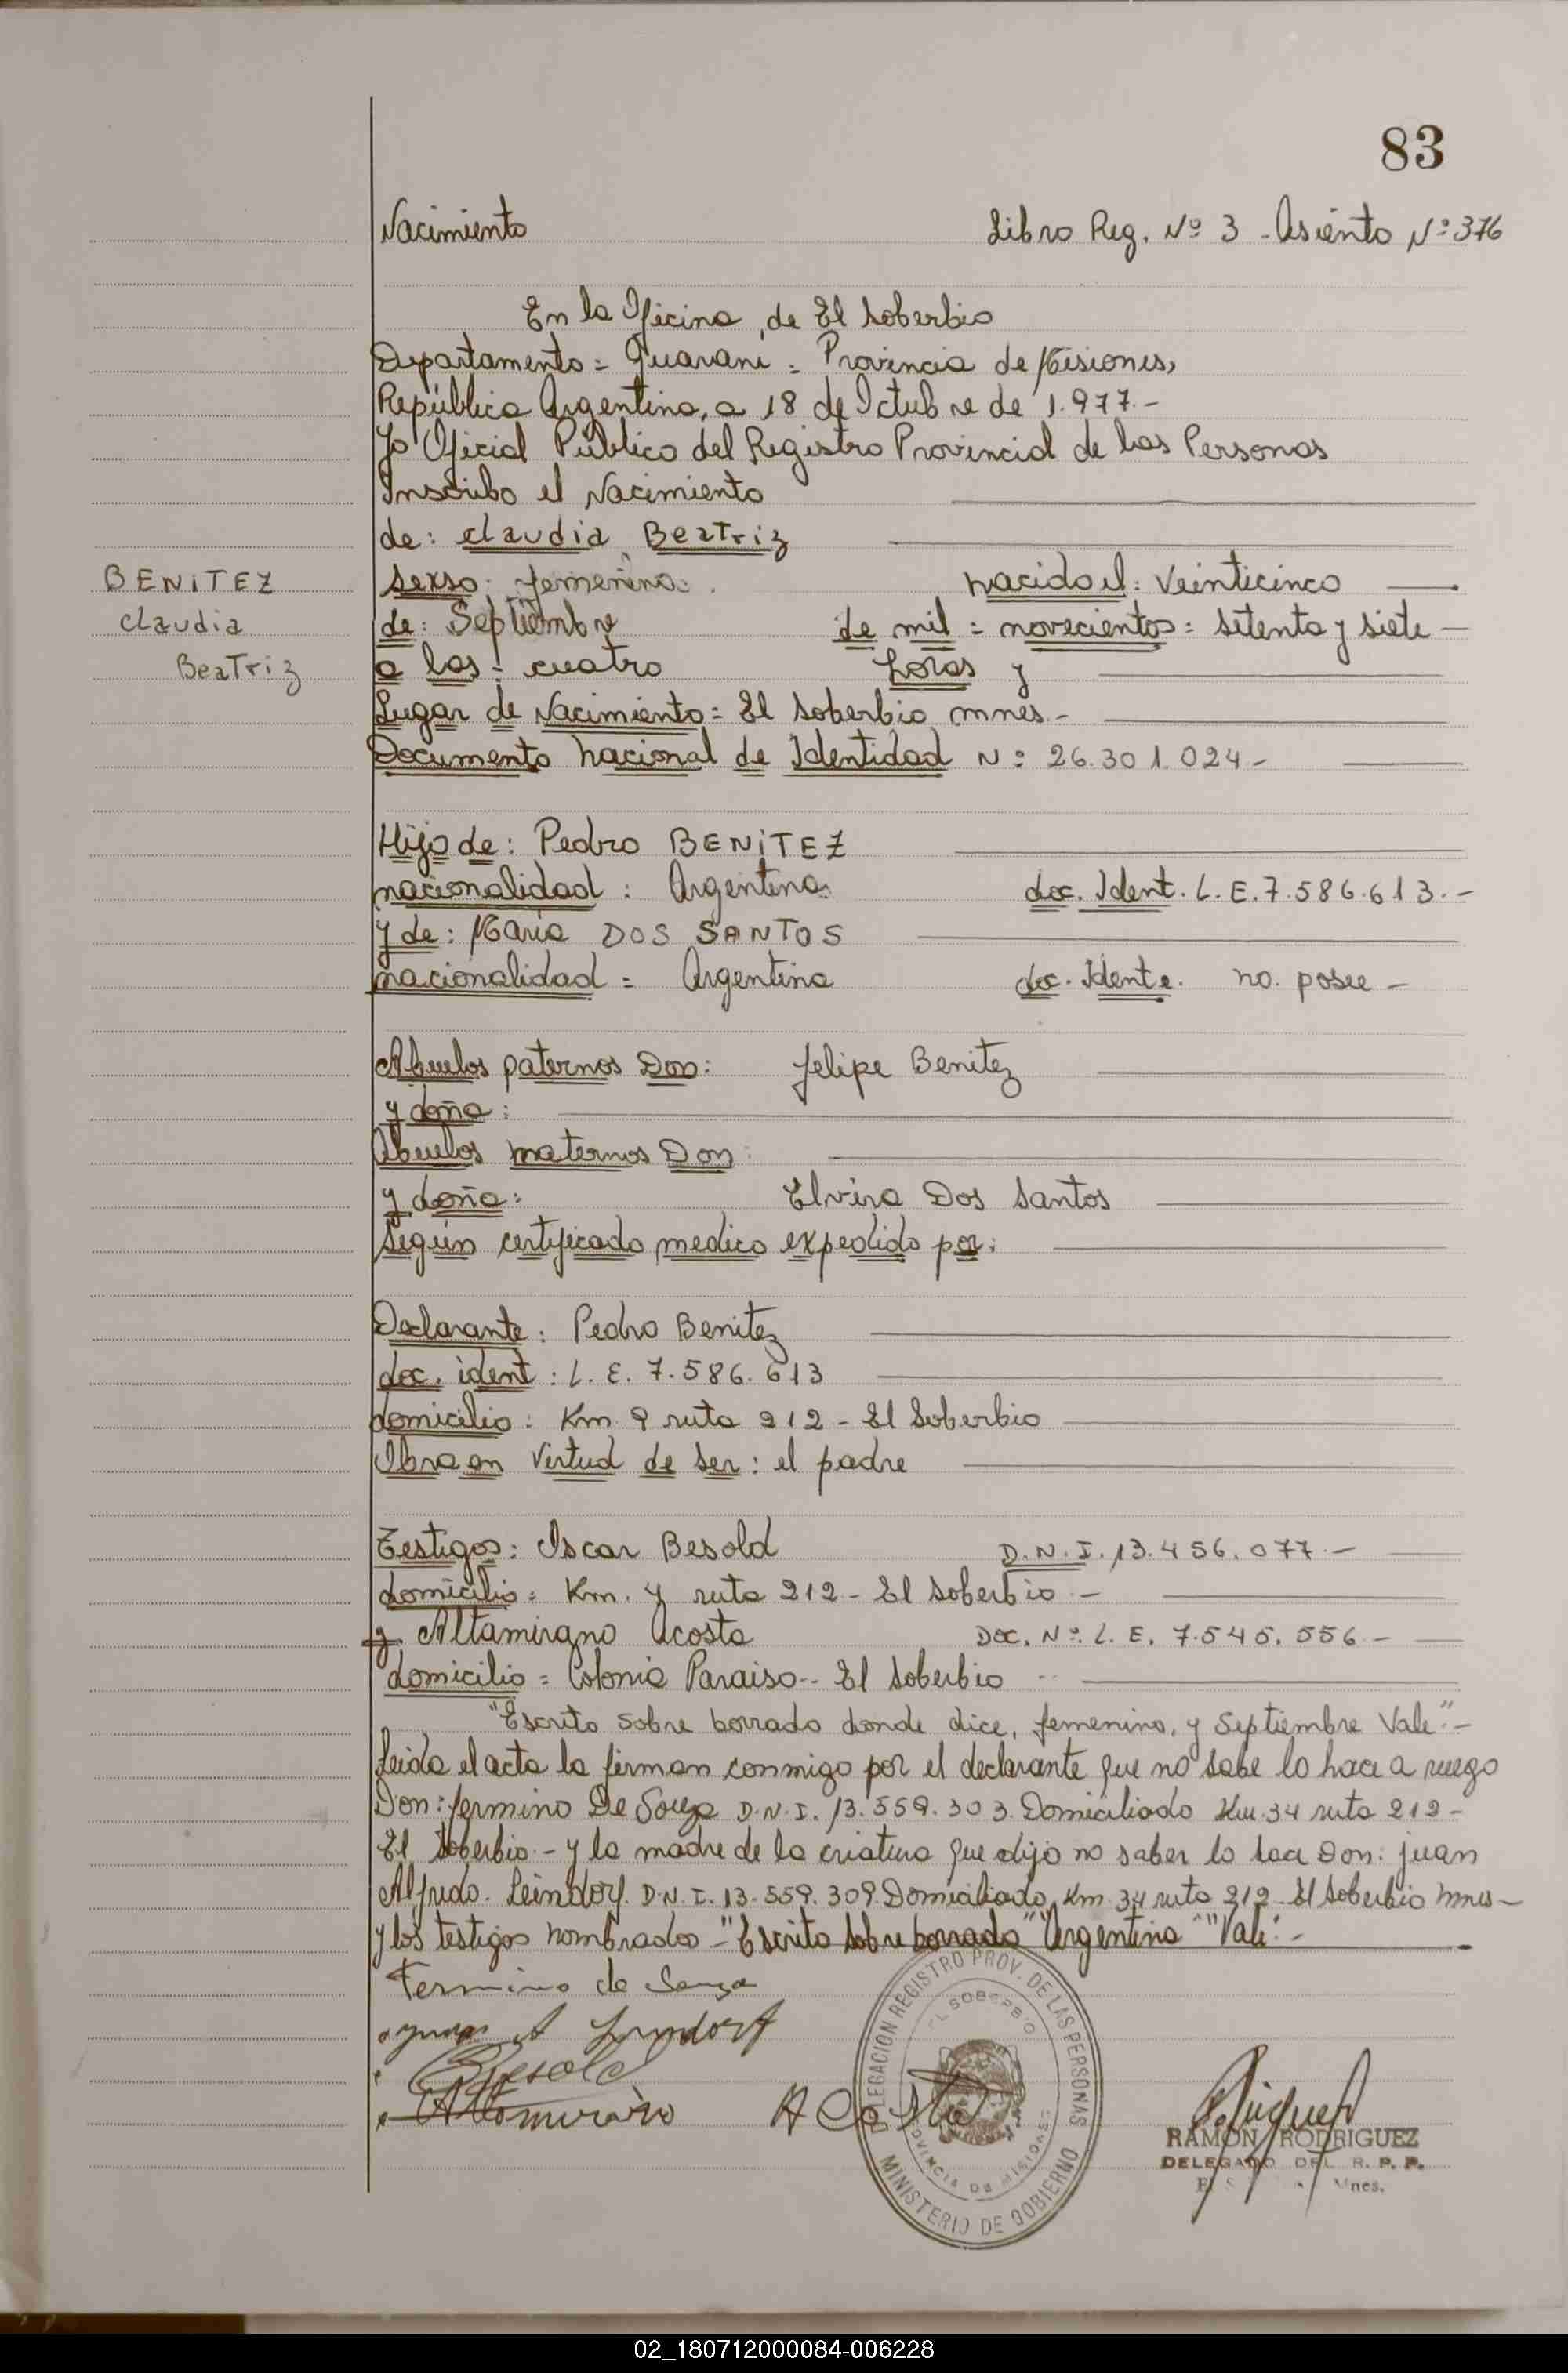 83
Nacimiento Libro Reg. Nº 3 - Asiento Nº 376
En la Oficina de El Soberbio
Departamento = Guaraní = Provincia de Misiones,
República Argentina, a 18 de Octubre de 1.977.-
Yo Oficial Público del Registro Provincial de las Personas
Inscribo el Nacimiento
de: Claudia Beatriz
BENITEZ
Claudia
Beatriz
sexso: femenino. nacido el: Veinticinco
de: Septiembre de mil = novecientos = setenta y siete
a las: cuatro horas y
Lugar de Nacimiento = El Soberbio mnes.-
Documento nacional de Identidad Nº 26.301.024-
Hijo de: Pedro BENITEZ
nacionalidad: Argentina doc. Ident. L.E. 7.586.613.-
y de: María DOS SANTOS
nacionalidad = Argentina doc. Idente. no. posee -
Abuelos paternos Don: Felipe Benitez
y doña:
Abuelos maternos Don:
y doña: Elvira Dos Santos
Según certificado medico expedido por:
Declarante: Pedro Benitez
doc. ident: L.E. 7.586.613
domicilio: Km. 9 ruta 212 - El Soberbio
Obra en Virtud de ser: el padre
Testigos: Oscar Besold D.N.I. 13.456.077.-
domicilio = Km. y ruta 212 - El Soberbio -
y. Altamirano Acosta Doc. Nº. L.E. 7.545.556 -
domicilio = Colonia Paraiso - El Soberbio
"Escrito sobre borrado donde dice, femenino, y Septiembre Vale".-
Leida el acta la firman conmigo por el declarante que no sabe lo hace a ruego
Don: Fermino De Souza D.N.I. 13.559.303 Domiciliado Km. 34 ruta 212 -
El Soberbio - y la madre de la criatura que dijo no saber lo hace Don: Juan
Alfredo. Leindorf. D.N.I. 13.559.309 Domiciliado Km 34 ruta 212 El Soberbio mnes -
y los testigos nombrados - "Escrito sobre borrado" "Argentina" "Vale".-
Fermino de Souza
A
Besold
Altamirano Acosta
DELEGACION REGISTRO PROV. DE LAS PERSONAS
EL SOBERBIO
PROVINCIA DE MISIONES
MINISTERIO DE GOBIERNO
RAMON RODRIGUEZ
DELEGADO DEL R. P. P.
Mnes.
02_180712000084-006228